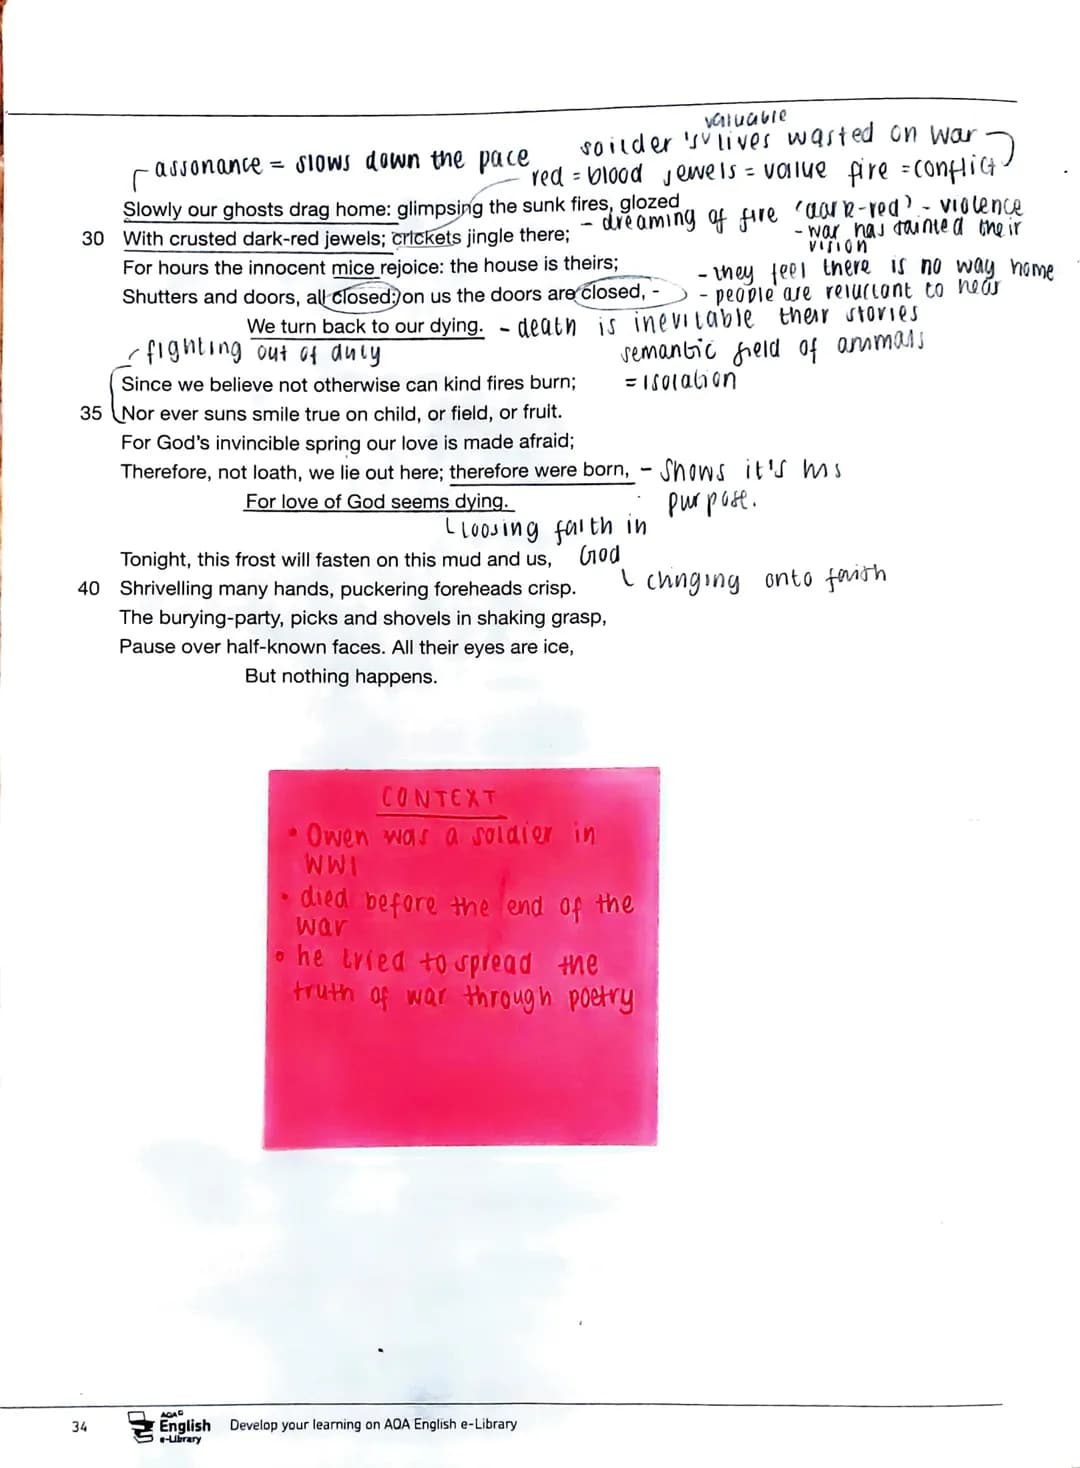 valuable
soilder's lives wasted on war
assonance = slows down the pace
red = blood jewels = value fire = conflict
Slowly our ghosts drag home: glimpsing the sunk fires, glozed
- dreaming of fire 'dark-red' - violence
30 With crusted dark-red jewels; crickets jingle there;
- war has tainted their
vision
For hours the innocent mice rejoice: the house is theirs;
- they feel there is no way home
Shutters and doors, all closed; on us the doors are closed, -
- people are reluctant to hear
their stories
We turn back to our dying. - death is inevitable
fighting out of duty
semantic field of animals
= isolation
Since we believe not otherwise can kind fires burn;
35 Nor ever suns smile true on child, or field, or fruit.
For God's invincible spring our love is made afraid;
Therefore, not loath, we lie out here; therefore were born, - shows it's his
purpose.
For love of God seems dying.
loosing faith in
God
Tonight, this frost will fasten on this mud and us,
clinging onto faith
40 Shrivelling many hands, puckering foreheads crisp.
The burying-party, picks and shovels in shaking grasp,
Pause over half-known faces. All their eyes are ice,
But nothing happens.
CONTEXT
• Owen was a soldier in
WW1
• died before the end of the
war
• he tried to spread the
truth of war through poetry
34
AQA
English
e-Library
Develop your learning on AQA English e-Library